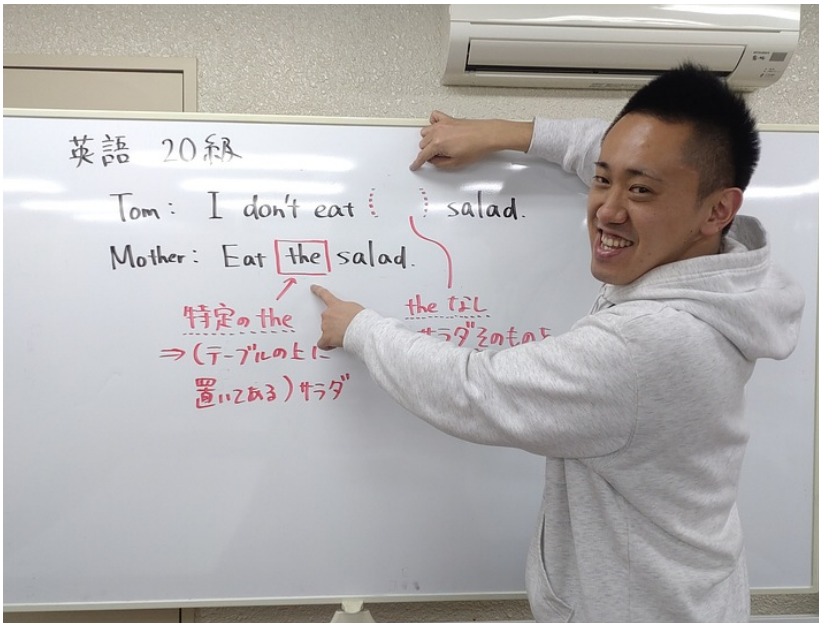 英語 20級
Tom: I don't eat ( ) salad.
Mother: Eat the salad.
特定の the
⇒(テーブルの上に
置いてある)サラダ
the なし
サラダそのものを